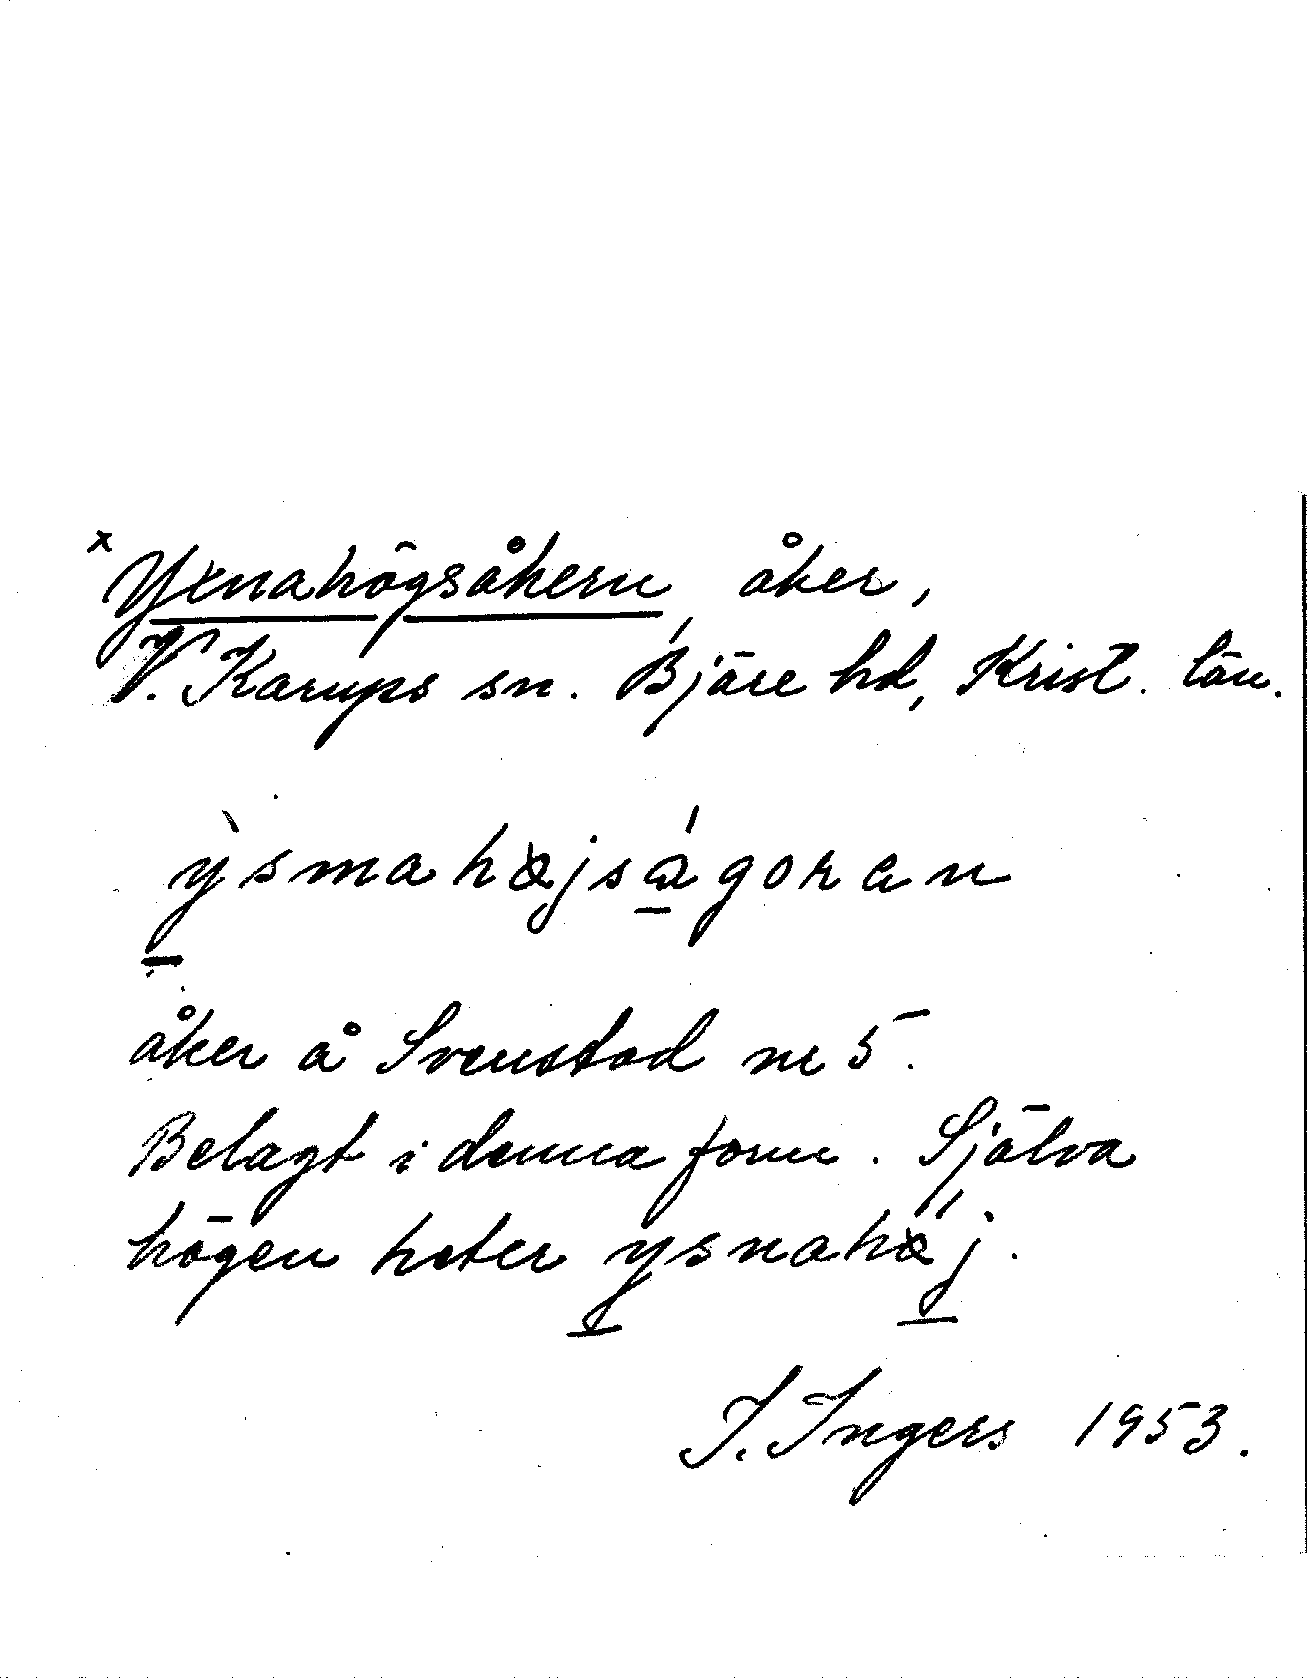 x Yxnahögsåkern åker,
V. Karups sn. Bjäre hd, Krist. län.
ỳsmahøjságoʀan
åker å Svenstad nr 5.
Belagt i denna form. Själva
högen heter ysnahøj.
I. Ingers 1953.